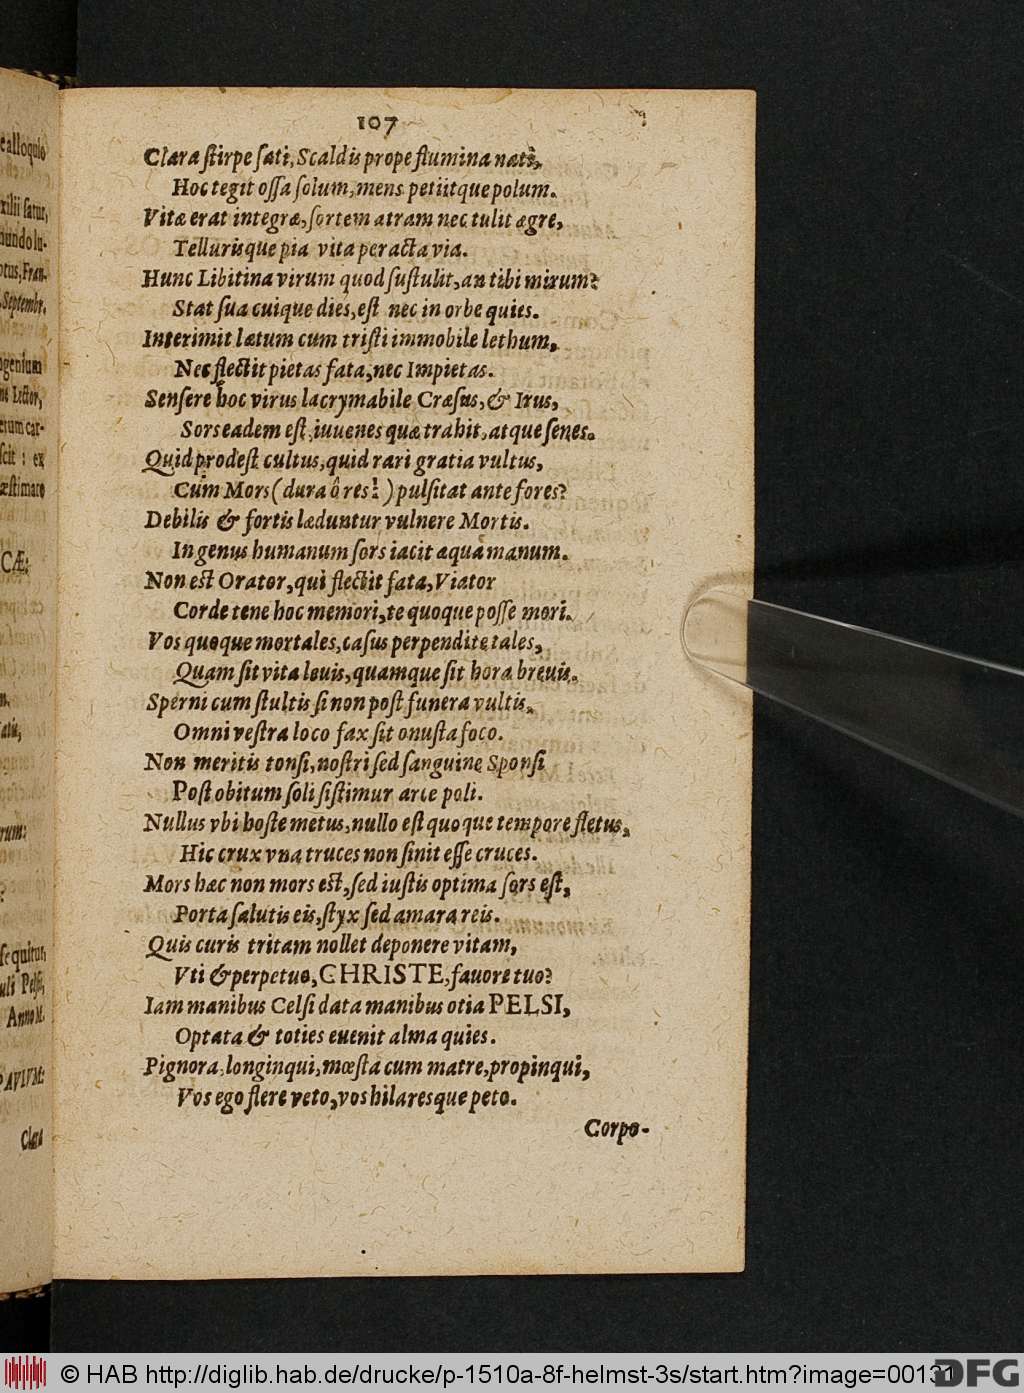 ealloquio
xilii satur,
mundo lu-
ptus, Fran.
Septembr.
ngenium
ne Lector,
erum car-
scit : ex
æstimare
CÆ:
rum:
sequitur,
uli Pelsi,
Anno M.
PAVLVM:
Clara
107
Clara stirpe sati, Scaldis prope flumina nati,
Hoc tegit ossa solum, mens petiitque polum.
Vitæ erat integræ, sortem atram nec tulit ægre,
Tellurisque pia vita peracta via.
Hunc Libitina virum quod sustulit, an tibi mirum?
Stat sua cuique dies, est nec in orbe quies.
Interimit lætum cum tristi immobile lethum,
Nec flectit pietas fata, nec Impietas.
Sensere hoc virus lacrymabile Cræsus, & Irus,
Sors eadem est, iuuenes quæ trahit, atque senes.
Quid prodest cultus, quid rari gratia vultus,
Cùm Mors (dura ô res! ) pulsitat ante fores?
Debilis & fortis læduntur vulnere Mortis.
In genus humanum sors iacit æqua manum.
Non est Orator, qui flectit fata, Viator
Corde tene hoc memori, te quoque posse mori.
Vos quoque mortales, casus perpendite tales,
Quam sit vita leuis, quamque sit hora breuis.
Sperni cum stultis si non post funera vultis,
Omni vestra loco fax sit onusta foco.
Non meritis tonsi, nostri sed sanguine Sponsi
Post obitum soli sistimur arce poli.
Nullus vbi hoste metus, nullo est quoque tempore fletus,
Hic crux vna truces non sinit esse cruces.
Mors hæc non mors est, sed iustis optima sors est,
Porta salutis eis, styx sed amara reis.
Quis curis tritam nollet deponere vitam,
Vti & perpetuo, CHRISTE, fauore tuo?
Iam manibus Celsi data manibus otia PELSI,
Optata & toties euenit alma quies.
Pignora, longinqui, mœsta cum matre, propinqui,
Vos ego flere veto, vos hilaresque peto.
Corpo-
© HAB http://diglib.hab.de/drucke/p-1510a-8f-helmst-3s/start.htm?image=00131
DFG